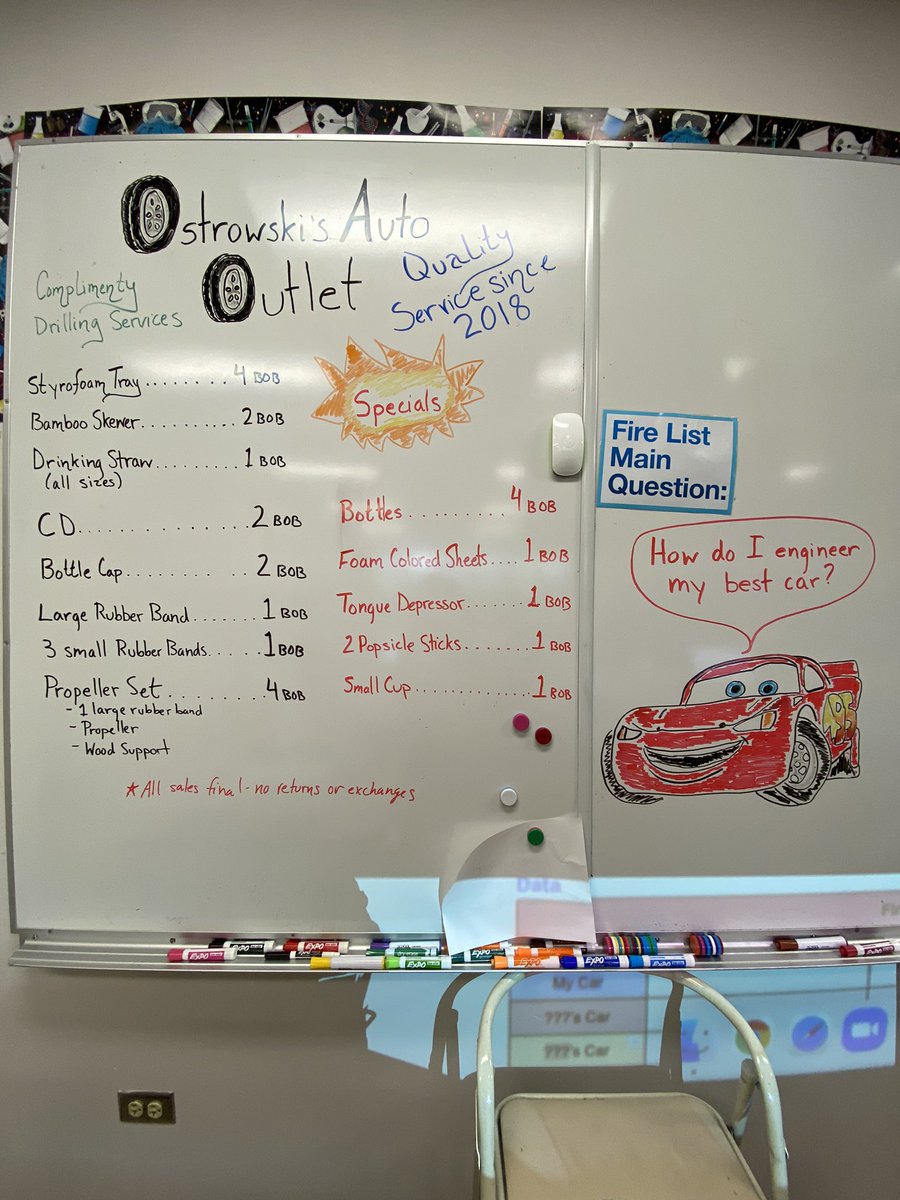 Ostrowski's Auto
Outlet
Quality
Service since
2018
Complimenty
Drilling Services
Styrofoam Tray........ 4 BOB
Bamboo Skewer.......... 2 BOB
Drinking Straw......... 1 BOB
(all sizes)
CD.............. 2 BOB
Bottle Cap.......... .. 2 BOB
Large Rubber Band....... 1 BOB
3 small Rubber Bands. .... 1 BOB
Propeller Set.......... 4 BOB
- 1 large rubber band
- Propeller
- Wood Support
Specials
Bottles.......... 4 BOB
Foam Colored Sheets.... 1 BOB
Tongue Depressor....... 1 BOB
2 Popsicle Sticks....... 1 BOB
Small Cup............ 1 BOB
★ All sales final - no returns or exchanges
Fire List
Main
Question:
How do I engineer
my best car?
95
Data
EXPO
EXPO
EXPO
EXPO
EXPO
EXPO
EXPO
My Car
???'s Car
???'s Car